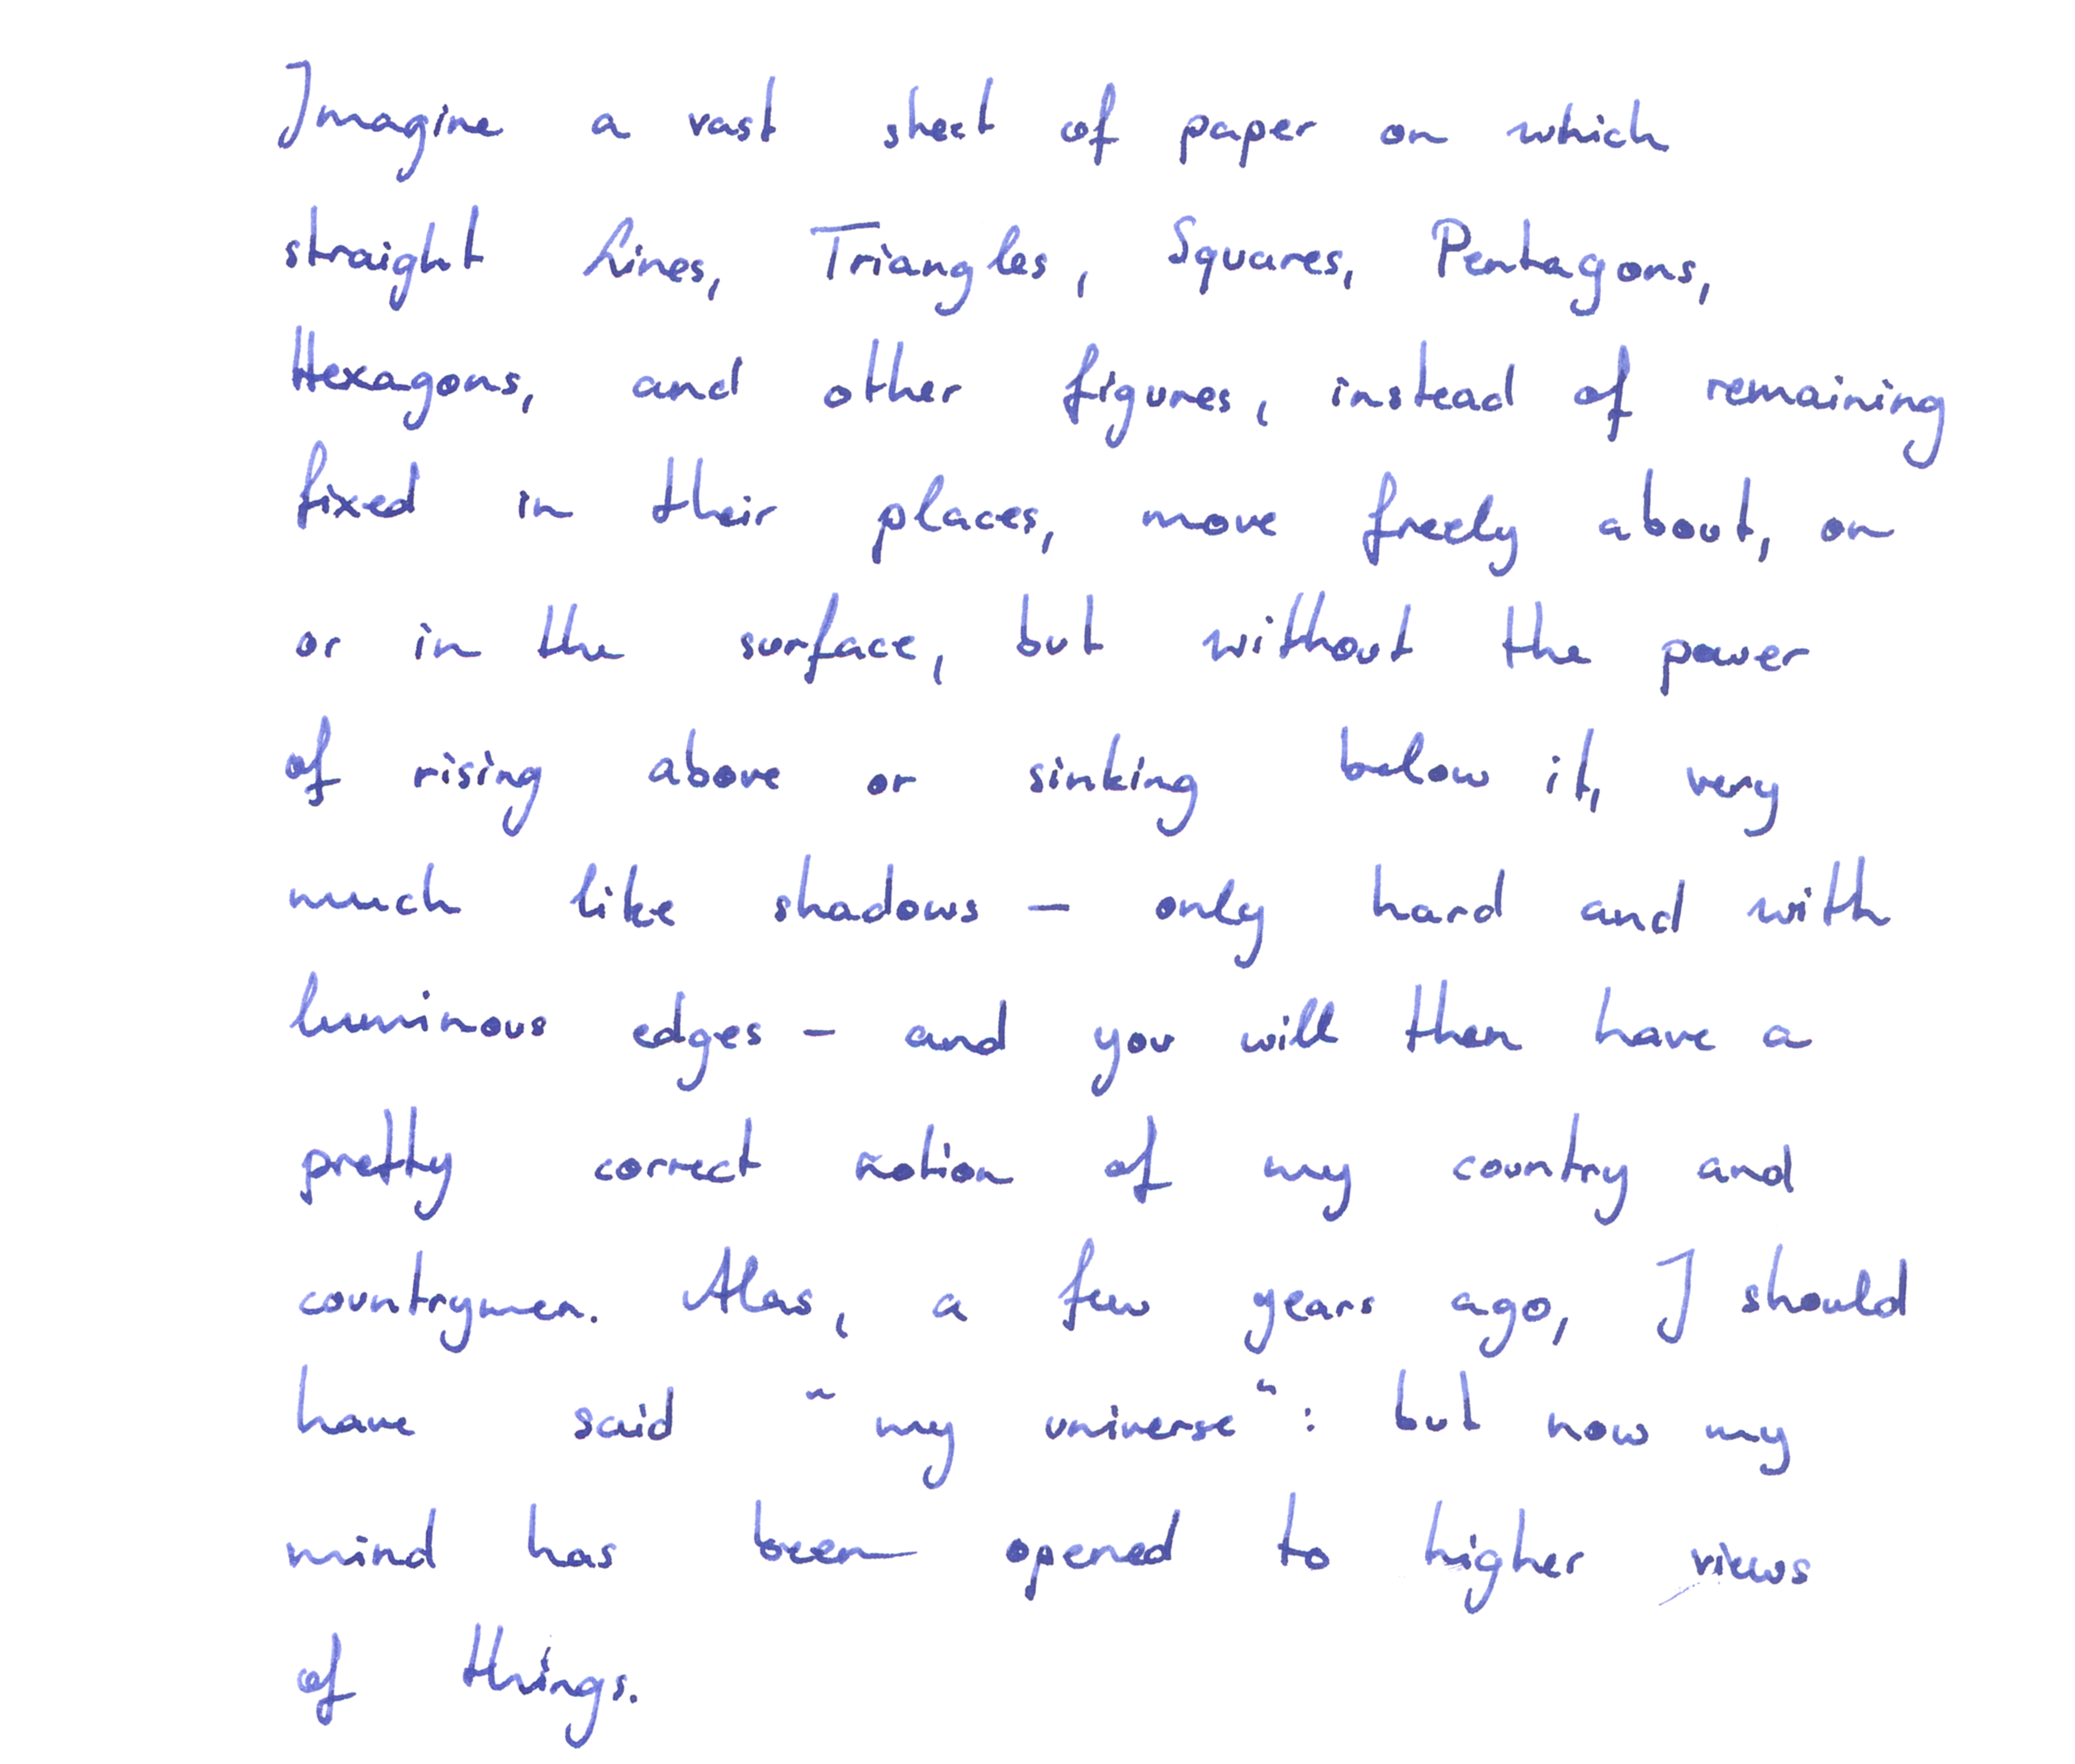 Imagine a vast sheet of paper on which
straight Lines, Triangles, Squares, Pentagons,
Hexagons, and other figures, instead of remaining
fixed in their places, move freely about, on
or in the surface, but without the power
of rising above or sinking below it, very
much like shadows – only hard and with
luminous edges – and you will then have a
pretty correct notion of my country and
countrymen. Alas, a few years ago, I should
have said "my universe": but now my
mind has been opened to higher views
of things.